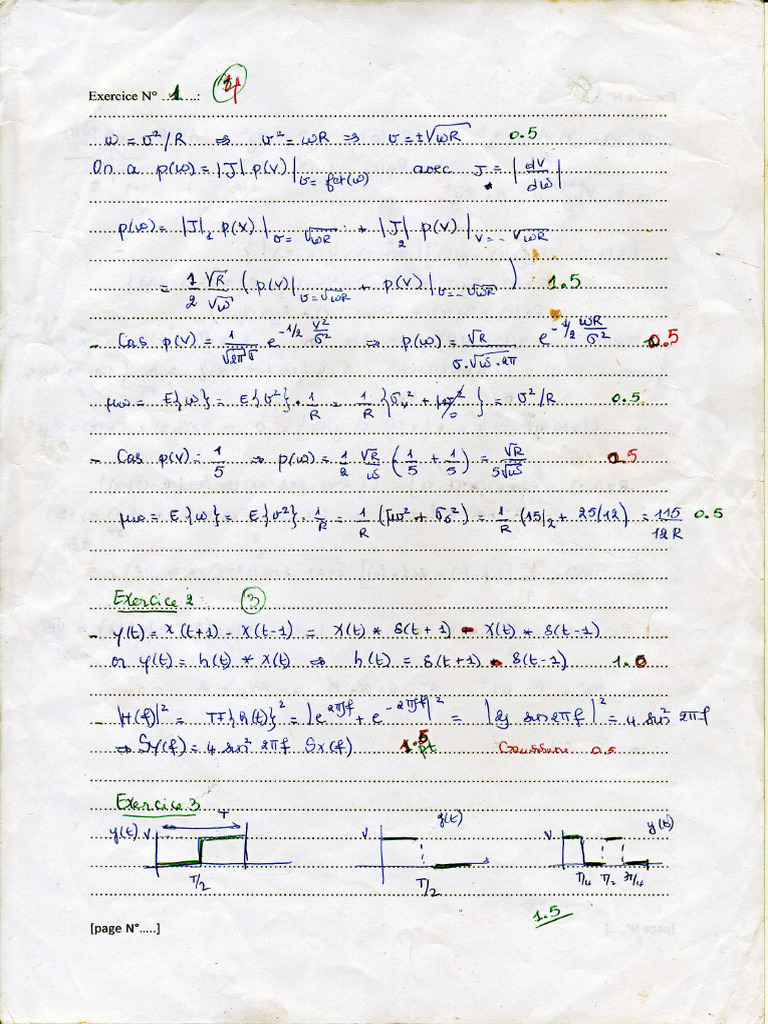 Exercice N° ...1....: 4
w = v²/R ⇒ v² = wR ⇒ v = ±√wR 0.5
On a p(w) = |J| p(v)|v = fct(w) avec J = |dv/dw|
p(w) = |J|₁ p(v)|v = √wR + |J|₂ p(v)|v = -√wR
= 1/2 √R/√w ( p(v)|v=√wR + p(v)|v=-√wR ) 1.5
- Cas p(v) = 1/√2π σ e^(-1/2 v²/σ²) ⇒ p(w) = √R/σ.√w.2π e^(-1/2 wR/σ²) 0.5
μw = E{w} = E{v²}.1/R = 1/R {σv² + μv²} = σ²/R 0.5
- Cas p(v) = 1/5 ⇒ p(w) = 1/2 √R/w (1/5 + 1/5) = √R/5√w 0.5
μw = E{w} = E{v²}.1/R = 1/R (μv² + σv²) = 1/R (15/2 + 25/12) = 115/12R 0.5
Exercice 2 3
- y(t) = x(t+1) - x(t-1) = x(t) * δ(t+1) - x(t) * δ(t-1)
or y(t) = h(t) * x(t) ⇒ h(t) = δ(t+1) - δ(t-1) 1.0
- |H(f)|² = TF{h(t)}² = |e^(2πjf) + e^(-2πjf)|² = |2j sin 2πf|² = 4 sin² 2πf
⇒ Sy(f) = 4 sin² 2πf Sx(f) 1.5 pt Gaussienne 0.5
Exercice 3
T
y(t) V V z(t) V y(t)
T/2 T/2 T/4 T/2 3T/4
1.5
[page N°.....]